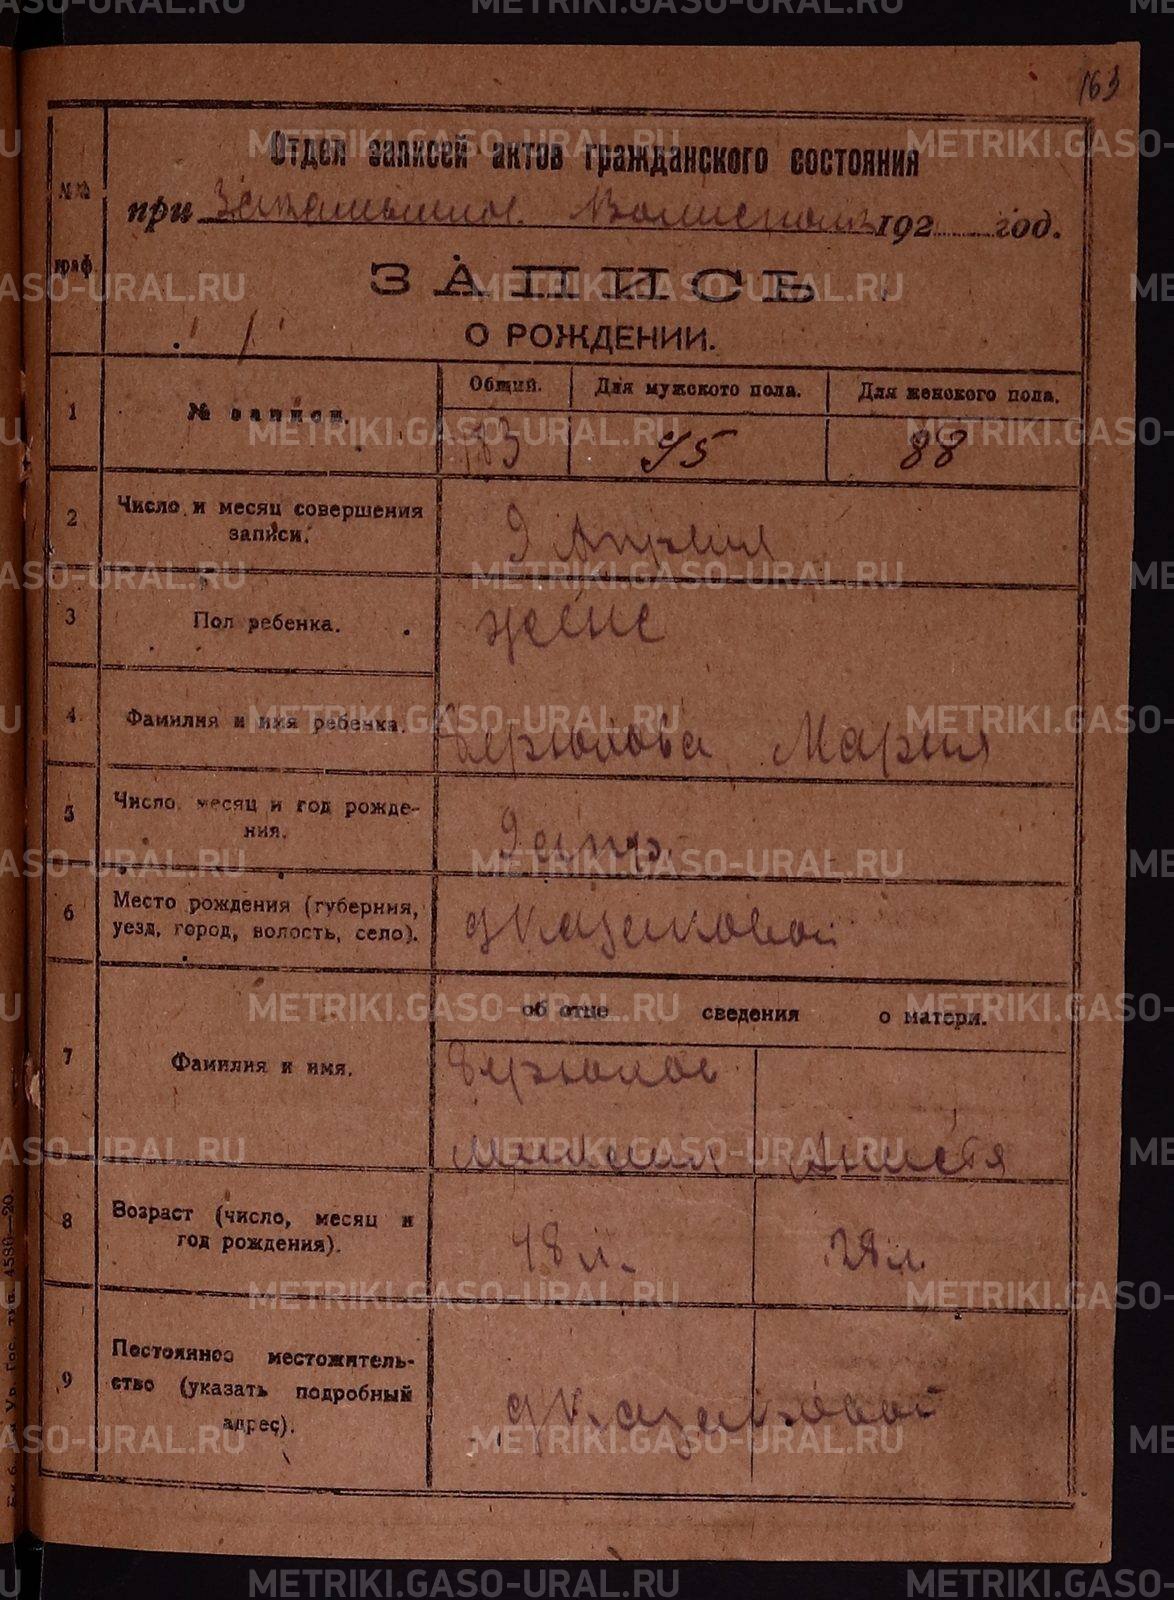 METRIKI.GASO-URAL.RU METRIKI.GASO-URAL.RU
163
Отдел записей актов гражданского состояния
при Волисполк 192 год.
№№ граф.
ЗАПИСЬ
О РОЖДЕНИИ.
1 № записи. Общий. Для мужского пола. Для женского пола.
183 95 88
2 Число и месяц совершения записи. 9 Апреля
3 Пол ребенка. женс
4 Фамилия и имя ребенка. Берюлова Мария
5 Число, месяц и год рождения. 9 апр.
6 Место рождения (губерния, уезд, город, волость, село). д Казаковой
об отце сведения о матери.
7 Фамилия и имя. Берюлов
8 Возраст (число, месяц и год рождения). 48 л. 28 л.
9 Постоянное местожительство (указать подробный адрес). д Казаковой
METRIKI.GASO-URAL.RU METRIKI.GASO-URAL.RU